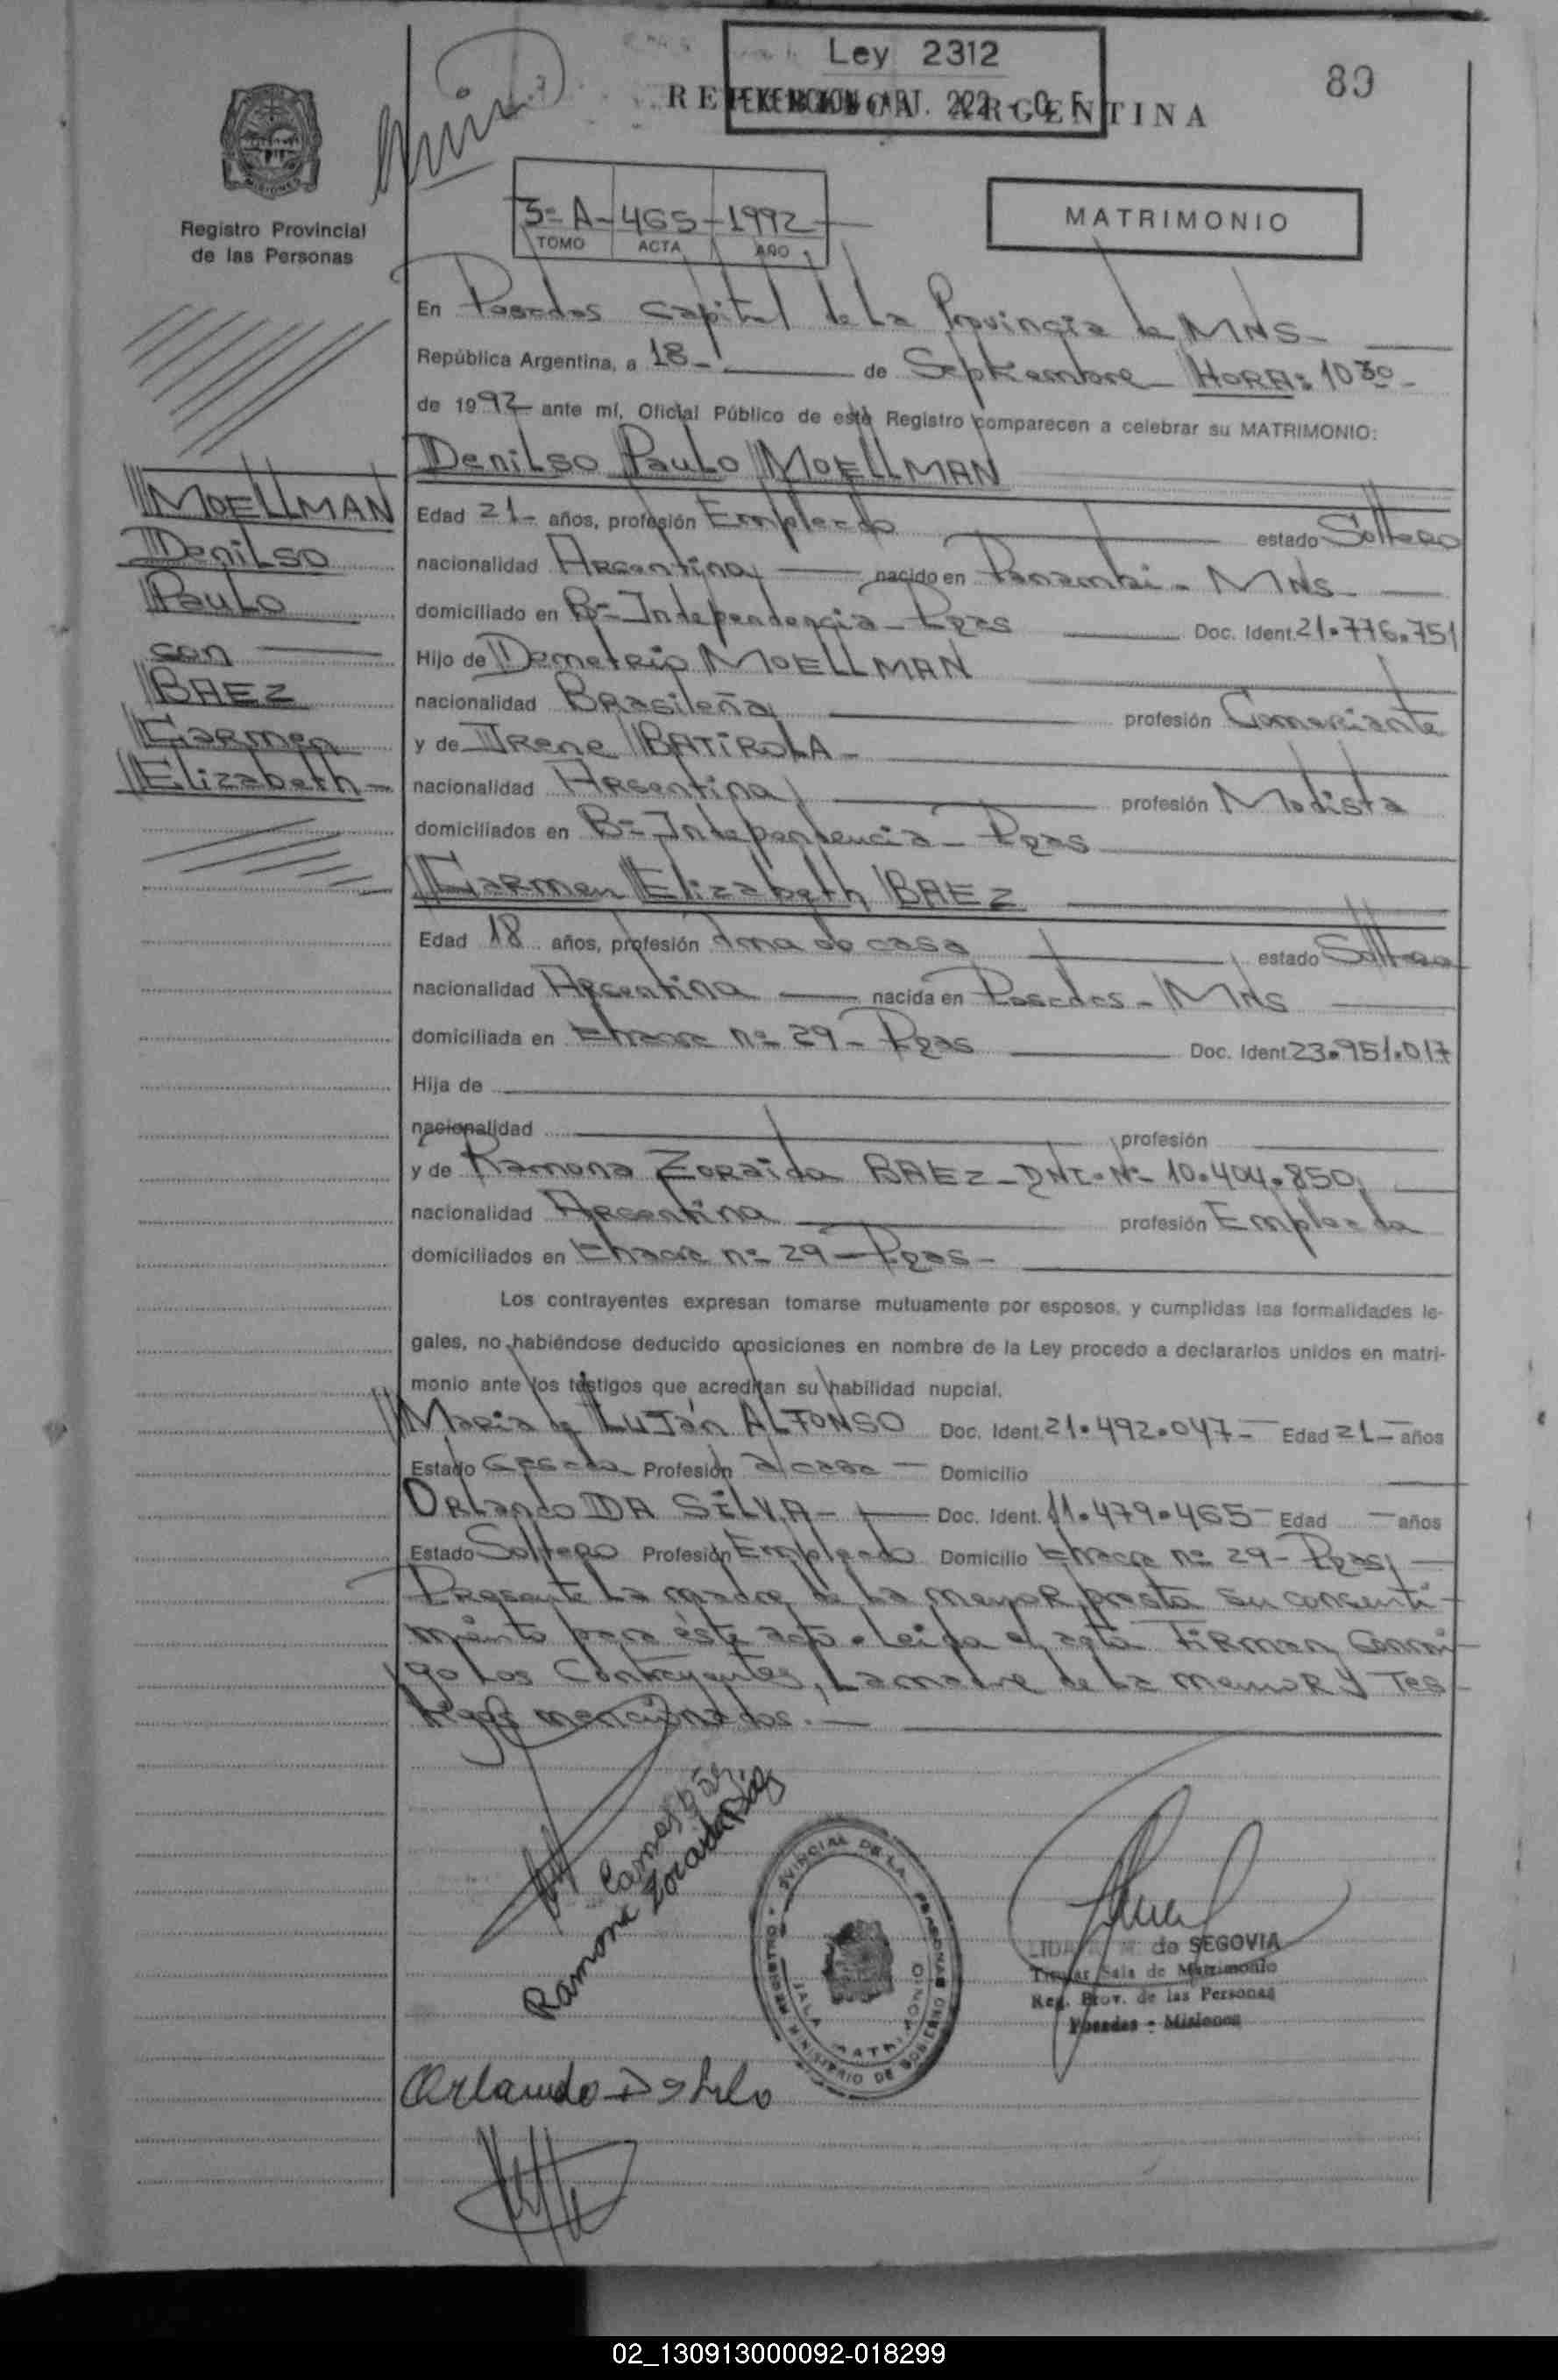 Ley 2312
89
REPUBLICA ARGENTINA
MATRIMONIO
Registro Provincial
de las Personas
3º A - 465 - 1992
TOMO ACTA AÑO
En Posadas Capital de La Provincia de MNS-
República Argentina, a 18- de Septiembre - HORA: 10 30-
de 1992 ante mí, Oficial Público de este Registro comparecen a celebrar su MATRIMONIO:
Denilso Paulo MOELLMAN
MOELLMAN
Denilso
Paulo
con
BAEZ
Carmen
Elizabeth-
Edad 21- años, profesión Empleado estado Soltero
nacionalidad Argentina nacido en Panambi - MNS-
domiciliado en Bº Independencia - Pdas Doc. Ident. 21.776.751
Hijo de Demetrio MOELLMAN
nacionalidad Brasileña profesión Comerciante
y de Irene BATIROLA-
nacionalidad Argentina profesión Modista
domiciliados en Bº Independencia - Pdas
Carmen Elizabeth BAEZ
Edad 18 años, profesión Ama de casa estado Soltera
nacionalidad Argentina nacida en Posadas - MNS
domiciliada en Chacra nº 29 - Pdas Doc. Ident. 23.951.017
Hija de
nacionalidad profesión
y de Ramona Zoraida BAEZ - DNI. Nº 10.404.850,
nacionalidad Argentina profesión Empleada
domiciliados en Chacra nº 29 - Pdas -
Los contrayentes expresan tomarse mutuamente por esposos, y cumplidas las formalidades le-
gales, no habiéndose deducido oposiciones en nombre de la Ley procedo a declararlos unidos en matri-
monio ante los testigos que acreditan su habilidad nupcial.
Maria de Luján ALFONSO Doc. Ident. 21.492.047- Edad 21- años
Estado Casada Profesión a/casa - Domicilio
Orlando DA SILVA- Doc. Ident. 11.479.465- Edad - años
Estado Soltero Profesión Empleado Domicilio Chacra nº 29 - Pdas,
Presente La madre de La menor, presta su consenti-
miento para éste acto. Leida el acta Firman Conmi-
go Los Contrayentes, La madre de La menor y Tes-
tigos mencionados.-
Carmen Báez
Ramona Zoraida Báez
de SEGOVIA
Titular Sala de Matrimonio
Reg. Prov. de las Personas
Posadas - Misiones
Orlando Da Silva
02_130913000092-018299